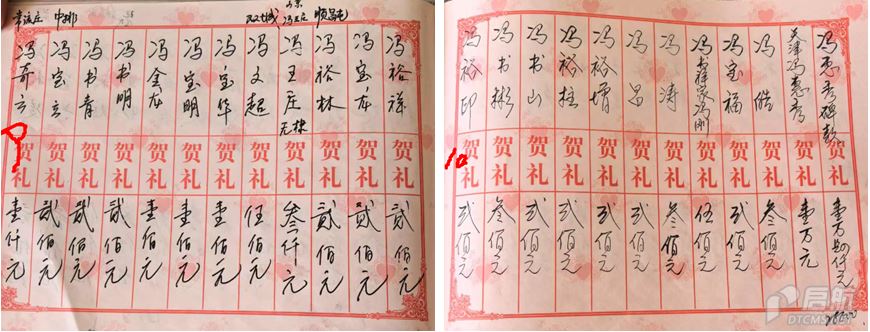 中排 双城 顺
冯裕祥 贺礼 贰佰元
冯宝库 贺礼 贰佰元
冯裕林 贺礼 贰佰元
冯王庄 无棣 贺礼 叁仟元
冯文超 贺礼 伍佰元
冯宝华 贺礼 壹佰元
冯宝明 贺礼 壹佰元
冯金龙 贺礼 壹佰元
冯书明 贺礼 贰佰元
冯书青 贺礼 贰佰元
冯宝云 贺礼 贰佰元
冯奇云 贺礼 壹仟元
9
冯惠秀碑款 贺礼 壹万 仟元
天津冯惠秀 贺礼 壹万元
冯皓 贺礼 叁佰元
冯宝福 贺礼 贰佰元
冯书祥家冯刚 贺礼 伍佰元
冯涛 贺礼 叁佰元
冯昌 贺礼 贰佰元
冯裕增 贺礼 贰佰元
冯裕柱 贺礼 贰佰元
冯书山 贺礼 贰佰元
冯书彬 贺礼 叁佰元
冯裕印 贺礼 贰佰元
10
启航
DTCMS.NET